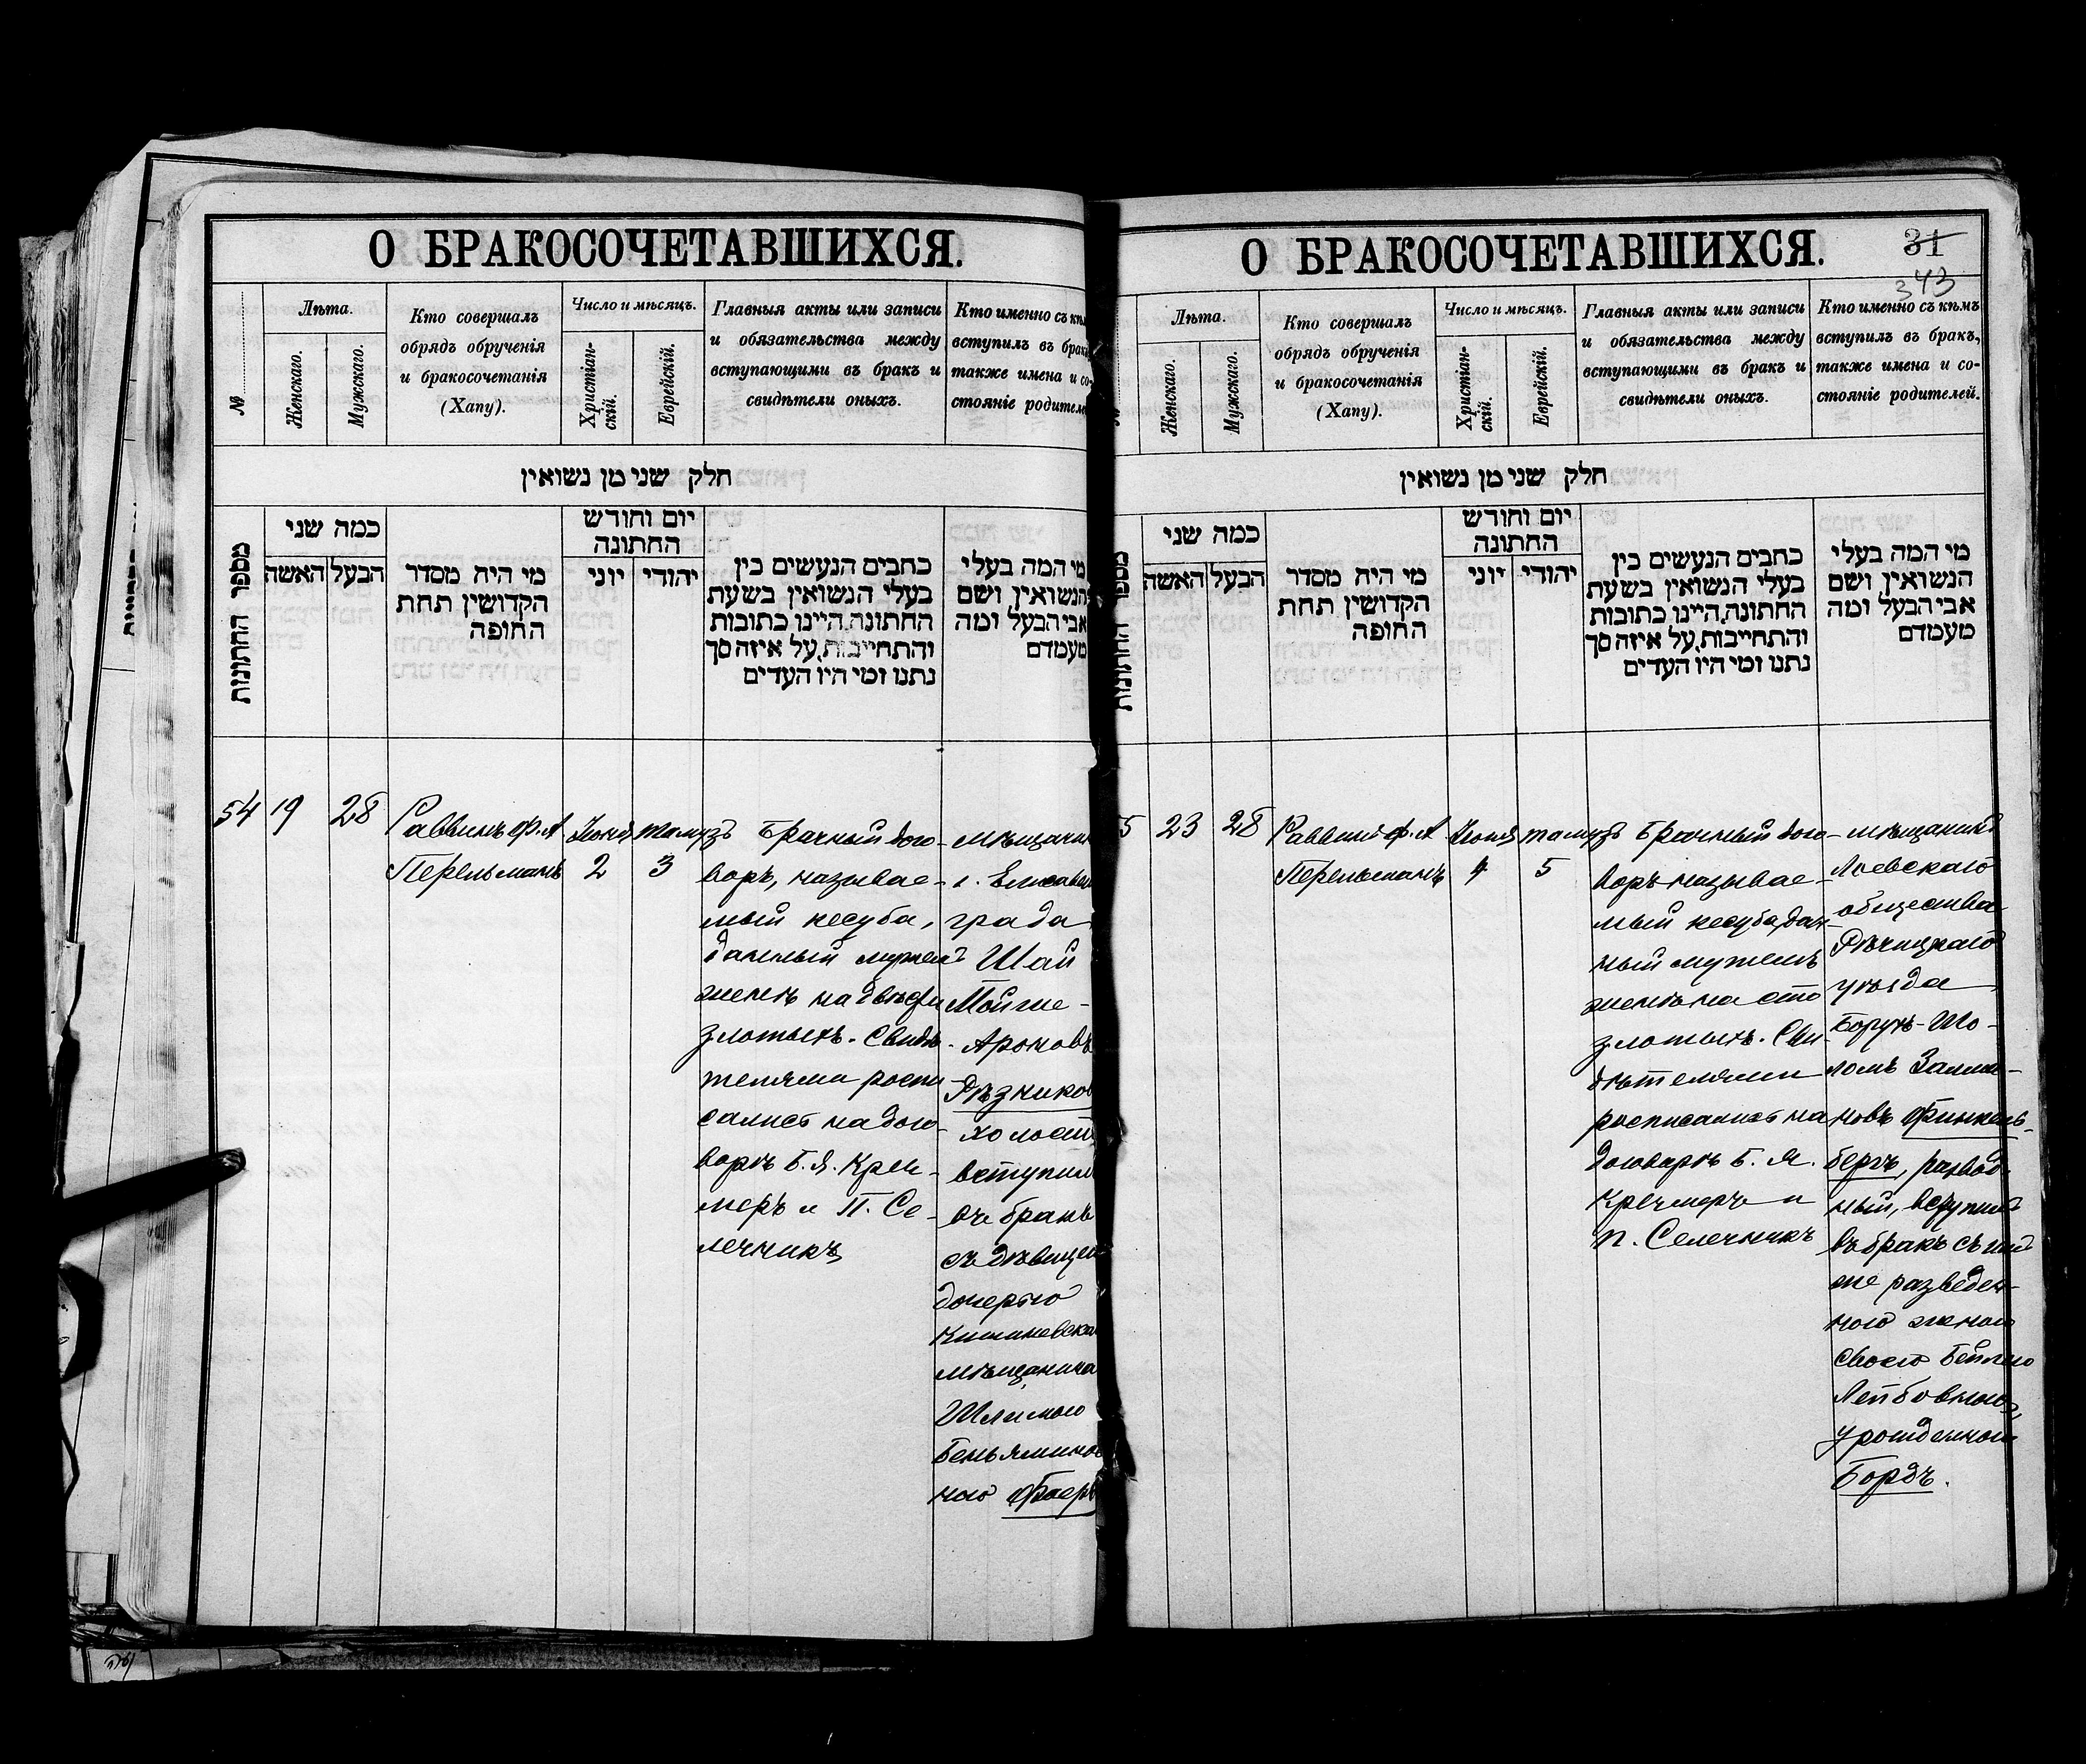 О БРАКОСОЧЕТАВШИХСЯ.
№
Лѣта.
Женскаго.
Мужскаго.
Кто совершалъ
обрядъ обрученія
и бракосочетанія
(Хапу).
Число и мѣсяцъ.
Христіан-
скій.
Еврейскій.
Главныя акты или записи
и обязательства между
вступающими въ бракъ и
свидѣтели оныхъ.
Кто именно съ кѣм
вступилъ въ брак
также имена и со-
стояніе родителе
חלק שני מן נשואין
מספר החתונות
כמה שני
האשה
הבעל
מי היה מסדר
הקדושין תחת
החופה
יום וחודש
החתונה
יוני
יהודי
כתבים הנעשים בין
בעלי הנשואין בשעת
החתונה,היינו כתובות
והתחייבות,על איזה סך
נתנו ומי היו העדים
מי המה בעלי
הנשואין ושם
אבי הבעל ומה
מעמדם
54
19
28
Раввинъ Ф. А.
Перельманъ
Іюня
2
тамузъ
3
Брачный дого-
воръ, называе-
мый кесуба,
данный мужемъ
женѣ на двѣсти
злотыхъ. Свидѣ-
телями роспи
сались на дого-
ворѣ Б. Я. Креч-
меръ и П. Се-
лечникъ
мѣщанин
г. Елисавет
града
Шай
Мойше-
Ароновъ
Рѣзников
холост
вступил
въ бракъ
съ дѣвицею
дочерью
Кишиневска
мѣщанина
Шлимою
Беньяминов
ною Фаер
О БРАКОСОЧЕТАВШИХСЯ.
31
343
Лѣта.
Женскаго.
Мужскаго.
Кто совершалъ
обрядъ обрученія
и бракосочетанія
(Хапу).
Число и мѣсяцъ.
Христіан-
скій.
Еврейскій.
Главныя акты или записи
и обязательства между
вступающими въ бракъ и
свидѣтели оныхъ.
Кто именно съ кѣмъ
вступилъ въ бракъ,
также имена и со-
стояніе родителей.
חלק שני מן נשואין
כמה שני
האשה
הבעל
מי היה מסדר
הקדושין תחת
החופה
יום וחודש
החתונה
יוני
יהודי
כתבים הנעשים בין
בעלי הנשואין בשעת
החתונה,היינו כתובות
והתחייבות,על איזה סך
נתנו ומי היו העדים
מי המה בעלי
הנשואין ושם
אבי הבעל ומה
מעמדם
5
23
28
Раввинъ Ф. А.
Перельманъ
Іюня
4
тамузъ
5
Брачный дого-
воръ называе-
мый кесуба, дан-
ный мужемъ
женѣ на сто
злотыхъ. Сви-
дѣтелями
росписались на
договорѣ Б. Я.
Кречмеръ и
П. Селечникъ
мѣщанинъ
Лоевскаго
общества
Рѣчицкаго
уѣзда
Борухъ-Шо-
ломъ Залма-
новъ Финкель-
бергъ, развод-
ный, вступилъ
въ бракъ съ имъ
же разведен-
ною женою
своею Бейлею
Лейбовною,
урожденною
Бордъ.